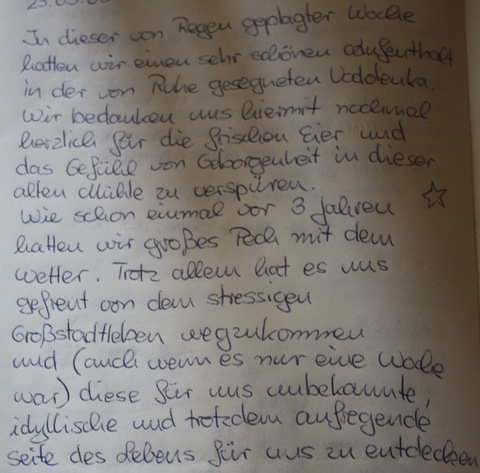 In dieser von Regen geplagter Woche
hatten wir einen sehr schönen Aufenthalt
in der von Ruhe gesegneten
Wir bedanken uns hiermit nochmal
herzlich für die frischen Eier und
das Gefühl von Geborgenheit in dieser
alten Mühle zu verspüren.
Wie schon einmal vor 3 Jahren
hatten wir großes Pech mit dem
Wetter. Trotz allem hat es uns
gefreut von dem stressigen
Großstadtleben wegzukommen
und (auch wenn es nur eine Woche
war) diese für uns unbekannte,
idyllische und trotzdem aufregende
Seite des Lebens für uns zu entdecken